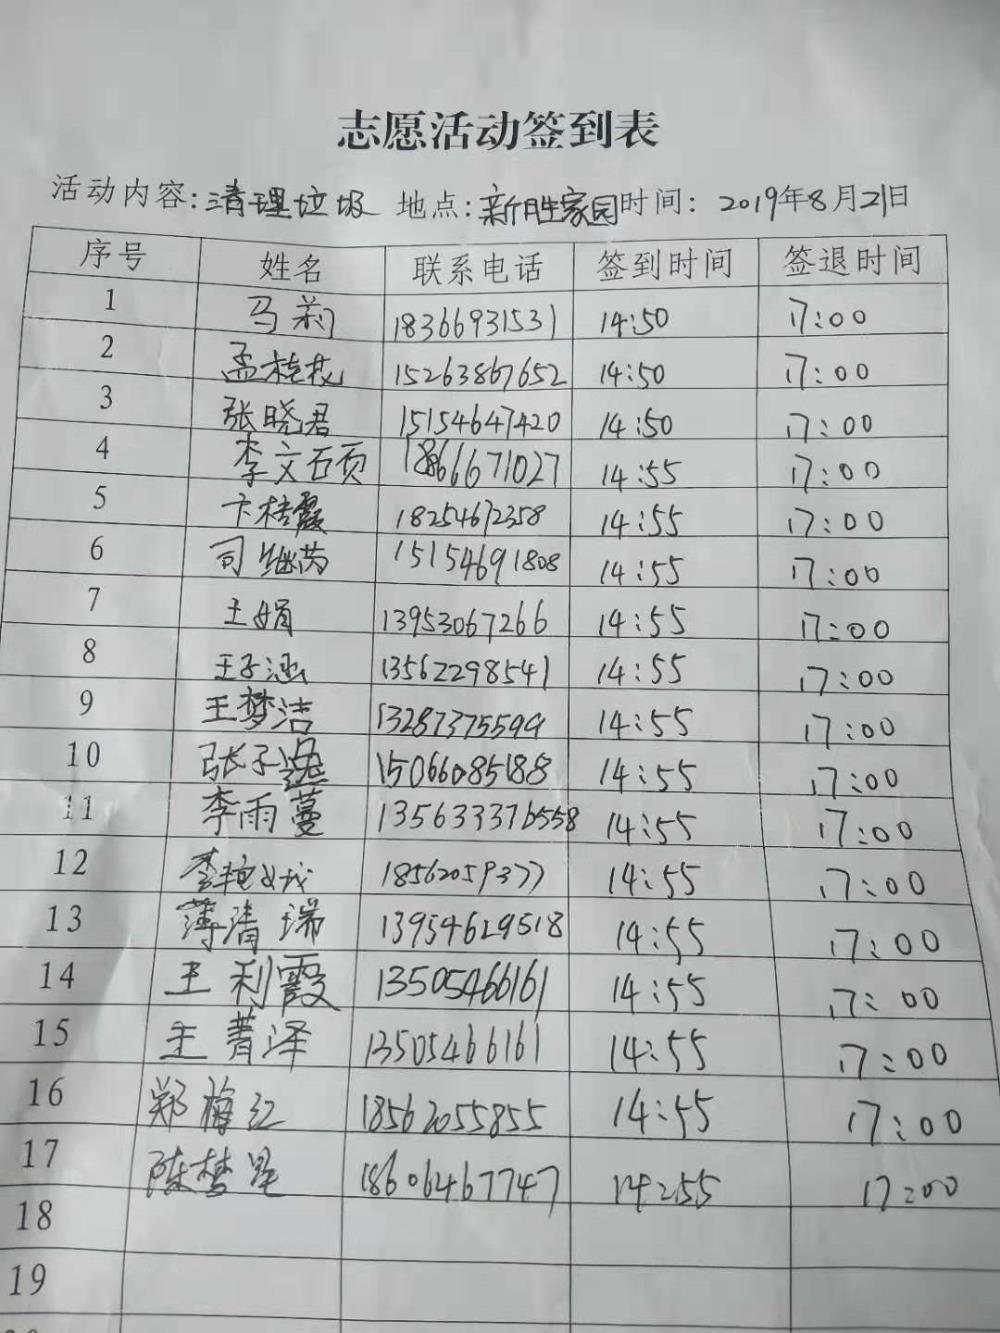 志愿活动签到表
活动内容:清理垃圾 地点:新胜家园 时间: 2019年8月21日
序号 姓名 联系电话 签到时间 签退时间
1 马莉 18366931531 14:50 17:00
2 孟桂 15263867652 14:50 17:00
3 张晓君 15154647420 14:50 17:00
4 李文硕 18666671027 14:55 17:00
5 卞桂霞 18254672358 14:55 17:00
6 司继芮 15154691808 14:55 17:00
7 王娟 13953067266 14:55 17:00
8 王子涵 13562298541 14:55 17:00
9 王梦洁 13287375599 14:55 17:00
10 张子逸 15066085188 14:55 17:00
11 李雨蔓 135633376558 14:55 17:00
12 李艳 18562059377 14:55 17:00
13 薄清瑞 13954629518 14:55 17:00
14 王利霞 13505466161 14:55 17:00
15 王菁泽 13505466161 14:55 17:00
16 郑梅红 18562055855 14:55 17:00
17 陈梦星 18606467747 14:55 17:00
18
19